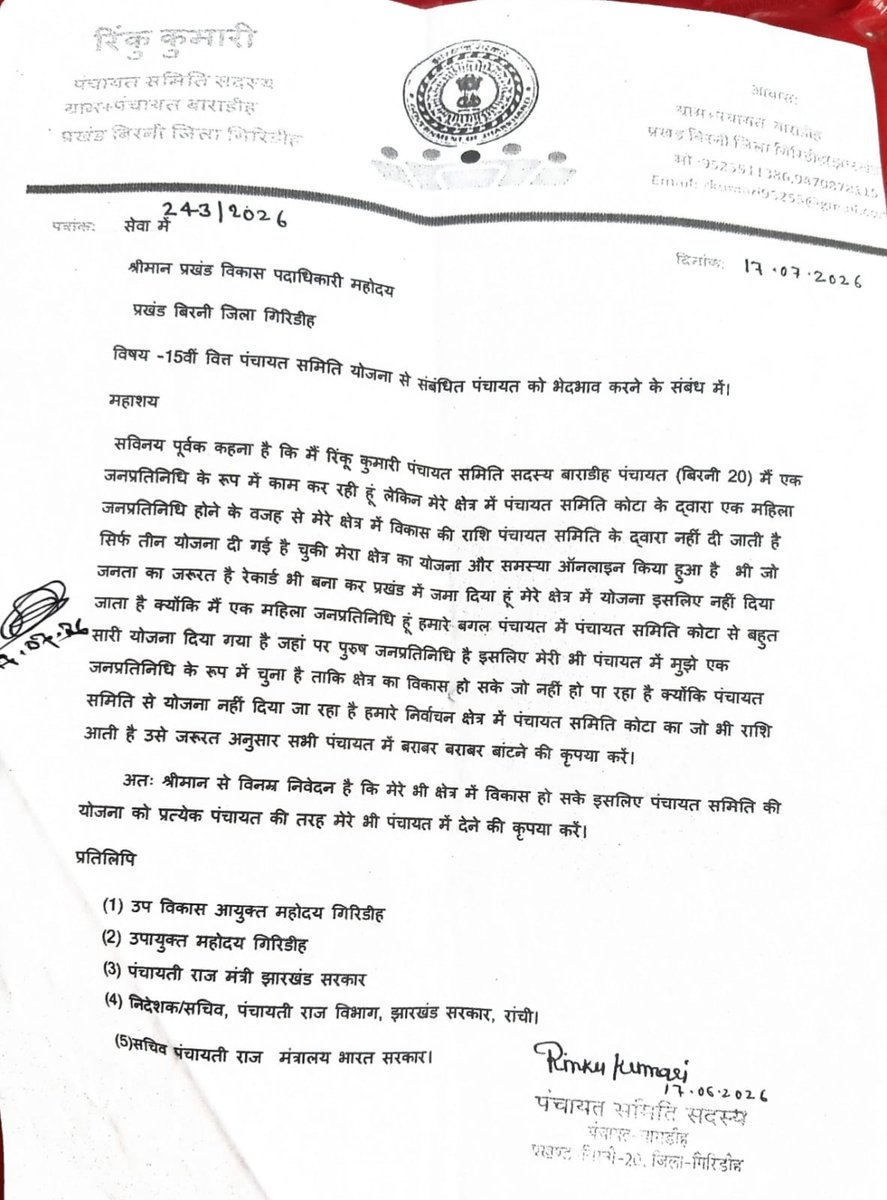 रिंकु कुमारी
पंचायत समिति सदस्य
ग्राम+पंचायत बाराडीह
प्रखंड बिरनी जिला गिरिडीह
GOVERNMENT OF JHARKHAND
आवास:
ग्राम+पंचायत बाराडीह
प्रखंड बिरनी जिला गिरिडीह
मो
Email:
पत्रांक: 243/2026
सेवा में
दिनांक: 17.07.2026
श्रीमान प्रखंड विकास पदाधिकारी महोदय
प्रखंड बिरनी जिला गिरिडीह
विषय -15वीं वित्त पंचायत समिति योजना से संबंधित पंचायत को भेदभाव करने के संबंध में।
महाशय
सविनय पूर्वक कहना है कि मैं रिंकू कुमारी पंचायत समिति सदस्य बाराडीह पंचायत (बिरनी 20) मैं एक
जनप्रतिनिधि के रूप में काम कर रही हूं लेकिन मेरे क्षेत्र में पंचायत समिति कोटा के द्वारा एक महिला
जनप्रतिनिधि होने के वजह से मेरे क्षेत्र में विकास की राशि पंचायत समिति के द्वारा नहीं दी जाती है
सिर्फ तीन योजना दी गई है चुकी मेरा क्षेत्र का योजना और समस्या ऑनलाइन किया हुआ है भी जो
जनता का जरूरत है रेकार्ड भी बना कर प्रखंड में जमा दिया हूं मेरे क्षेत्र में योजना इसलिए नहीं दिया
जाता है क्योंकि मैं एक महिला जनप्रतिनिधि हूं हमारे बगल पंचायत में पंचायत समिति कोटा से बहुत
सारी योजना दिया गया है जहां पर पुरुष जनप्रतिनिधि है इसलिए मेरी भी पंचायत में मुझे एक
जनप्रतिनिधि के रूप में चुना है ताकि क्षेत्र का विकास हो सके जो नहीं हो पा रहा है क्योंकि पंचायत
समिति से योजना नहीं दिया जा रहा है हमारे निर्वाचन क्षेत्र में पंचायत समिति कोटा का जो भी राशि
आती है उसे जरूरत अनुसार सभी पंचायत में बराबर बराबर बांटने की कृपया करें।
अतः श्रीमान से विनम्र निवेदन है कि मेरे भी क्षेत्र में विकास हो सके इसलिए पंचायत समिति की
योजना को प्रत्येक पंचायत की तरह मेरे भी पंचायत में देने की कृपया करें।
प्रतिलिपि
(1) उप विकास आयुक्त महोदय गिरिडीह
(2) उपायुक्त महोदय गिरिडीह
(3) पंचायती राज मंत्री झारखंड सरकार
(4) निदेशक/सचिव, पंचायती राज विभाग, झारखंड सरकार, रांची।
(5)सचिव पंचायती राज मंत्रालय भारत सरकार।
Rinku Kumari
17.06.2026
पंचायत समिति सदस्य
पंचायत-बाराडीह
प्रखण्ड बिरनी-20, जिला-गिरिडीह